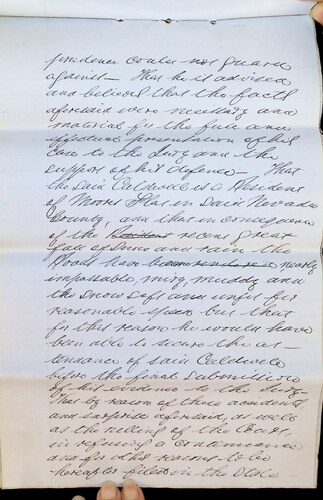 prudence could not guard
against — That he is advised
and believes that the facts
aforesaid were necessary and
material for the full and
effectual presentation of his
case to the Jury and the
support of his defence — That
the said Caldwell is a Resident
of Moores Flat in said Nevada
County, and that in consequence
of the recent great
fall of Snow and rain the
Roads have been nearly
impassable, miry, muddy and
the snow soft and unfit for
reasonable speed but that
for this reason he would have
been able to secure the at-
tendance of said Caldwell
before the final submission
of his evidence to the Jury —
That by reason of these accidents
and surprise aforesaid, as well
as the ruling of the Court,
in refusing a continuance
and for other reasons to be
hereafter filed in the